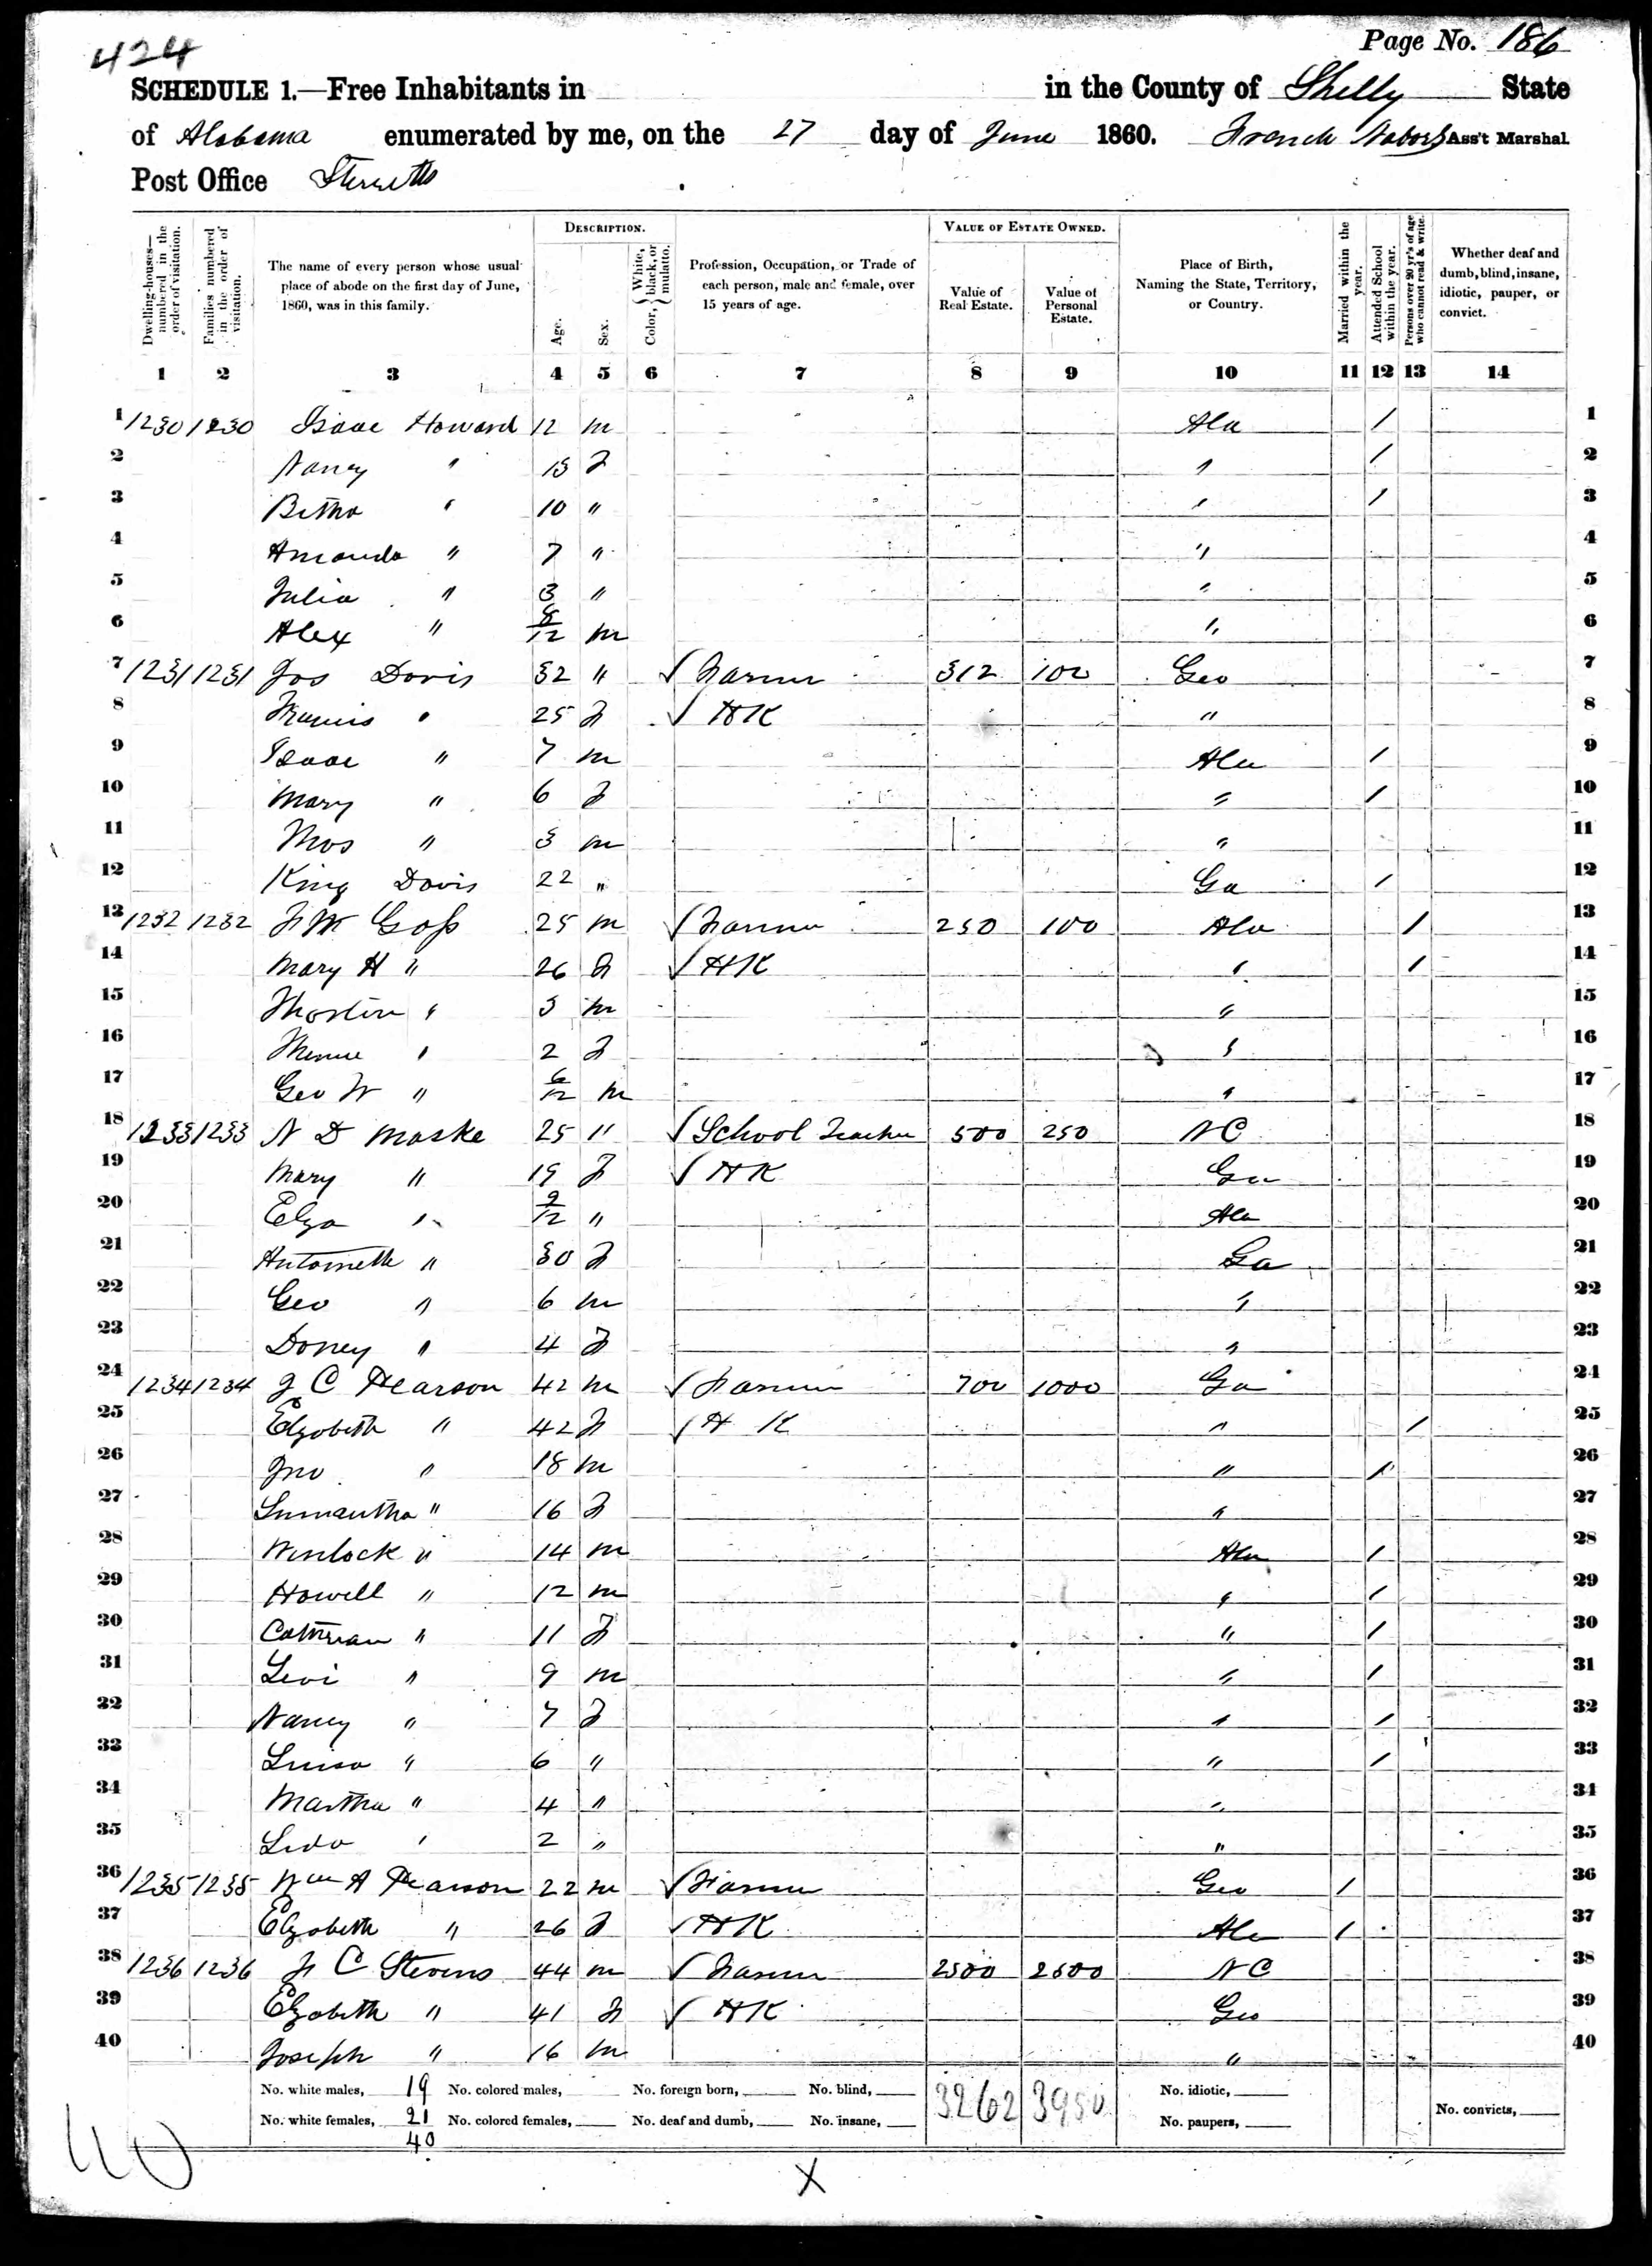 424
Page No. 186
SCHEDULE 1.—Free Inhabitants in in the County of Shelby State
of Alabama enumerated by me, on the 27 day of June 1860. French Nabors Ass't Marshal.
Post Office Sterretts
DESCRIPTION. VALUE OF ESTATE OWNED.
Dwelling-houses—numbered in the order of visitation. Families numbered in the order of visitation. The name of every person whose usual place of abode on the first day of June, 1860, was in this family. Age. Sex. Color, White, black, or mulatto. Profession, Occupation, or Trade of each person, male and female, over 15 years of age. Value of Real Estate. Value of Personal Estate. Place of Birth, Naming the State, Territory, or Country. Married within the year. Attended School within the year. Persons over 20 yr's of age who cannot read & write. Whether deaf and dumb, blind, insane, idiotic, pauper, or convict.
1 2 3 4 5 6 7 8 9 10 11 12 13 14
1 1230 1230 Isaac Howard 12 m Ala / 1
2 Nancy " 13 F " / 2
3 Bitha " 10 " " / 3
4 Amanda " 7 " " 4
5 Julia " 3 " " 5
6 Alex " 8/12 m " 6
7 1231 1231 Jos Davis 32 " √ Farmer 312 100 Geo 7
8 Francis " 25 F √ HK " 8
9 Isaac " 7 m Ala / 9
10 Mary " 6 F " / 10
11 Thos " 3 m " 11
12 King Davis 22 " Ga / 12
13 1232 1232 F W Goss 25 m √ Farmer 250 100 Ala / 13
14 Mary H " 26 F √ HK " / 14
15 " 3 m " 15
16 " 2 F " 16
17 Geo W " 6/12 m " 17
18 1233 1233 N D Maske 25 " √ School Teacher 500 250 NC 18
19 Mary " 19 F √ HK Ga 19
20 Elza " 9/12 " Ala 20
21 Antoinette " 30 F Ga 21
22 Geo " 6 m " 22
23 Doney " 4 F " 23
24 1234 1234 J C Pearson 42 m √ Farmer 700 1000 Ga 24
25 Elzabeth " 42 F √ H K " / 25
26 Jno " 18 m " / 26
27 Sumantha " 16 F " 27
28 Winlock " 14 m Ala / 28
29 Howell " 12 m " / 29
30 " 11 F " / 30
31 Levi " 9 m " / 31
32 Nancy " 7 F " / 32
33 Luisa " 6 " " / 33
34 Martha " 4 " " 34
35 Lida " 2 " " 35
36 1235 1235 Wm A Pearson 22 m √ Farmer Geo / 36
37 Elzabeth " 26 F √ HK Ala / 37
38 1236 1236 F C Stevens 44 m √ Farmer NC 38
39 Elzabeth " 41 F √ HK Geo 39
40 Joseph " 16 m " 40
No. white males, 19 No. colored males, No. foreign born, No. blind, 3262 3950 No. idiotic,
No. white females, 21 No. colored females, No. deaf and dumb, No. insane, No. paupers, No. convicts,
40
40
X